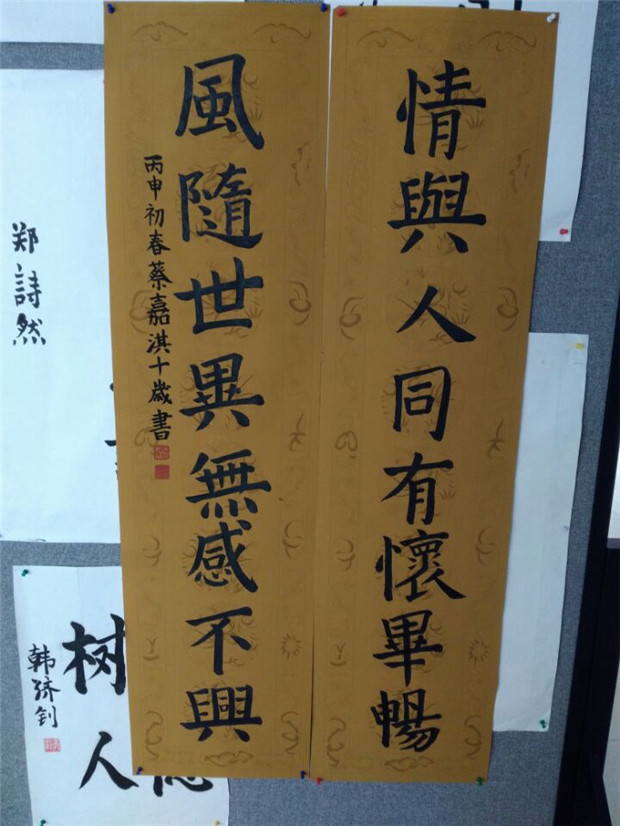 情與人同有懷畢暢
風隨世異無感不興
丙申初春蔡嘉淇十歲書
郑詩然
树
人